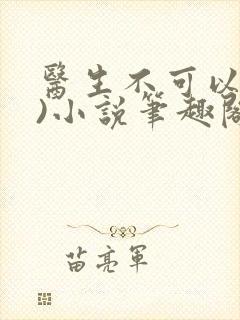 醫生不可以
)小說筆趣閣
苗亮軍